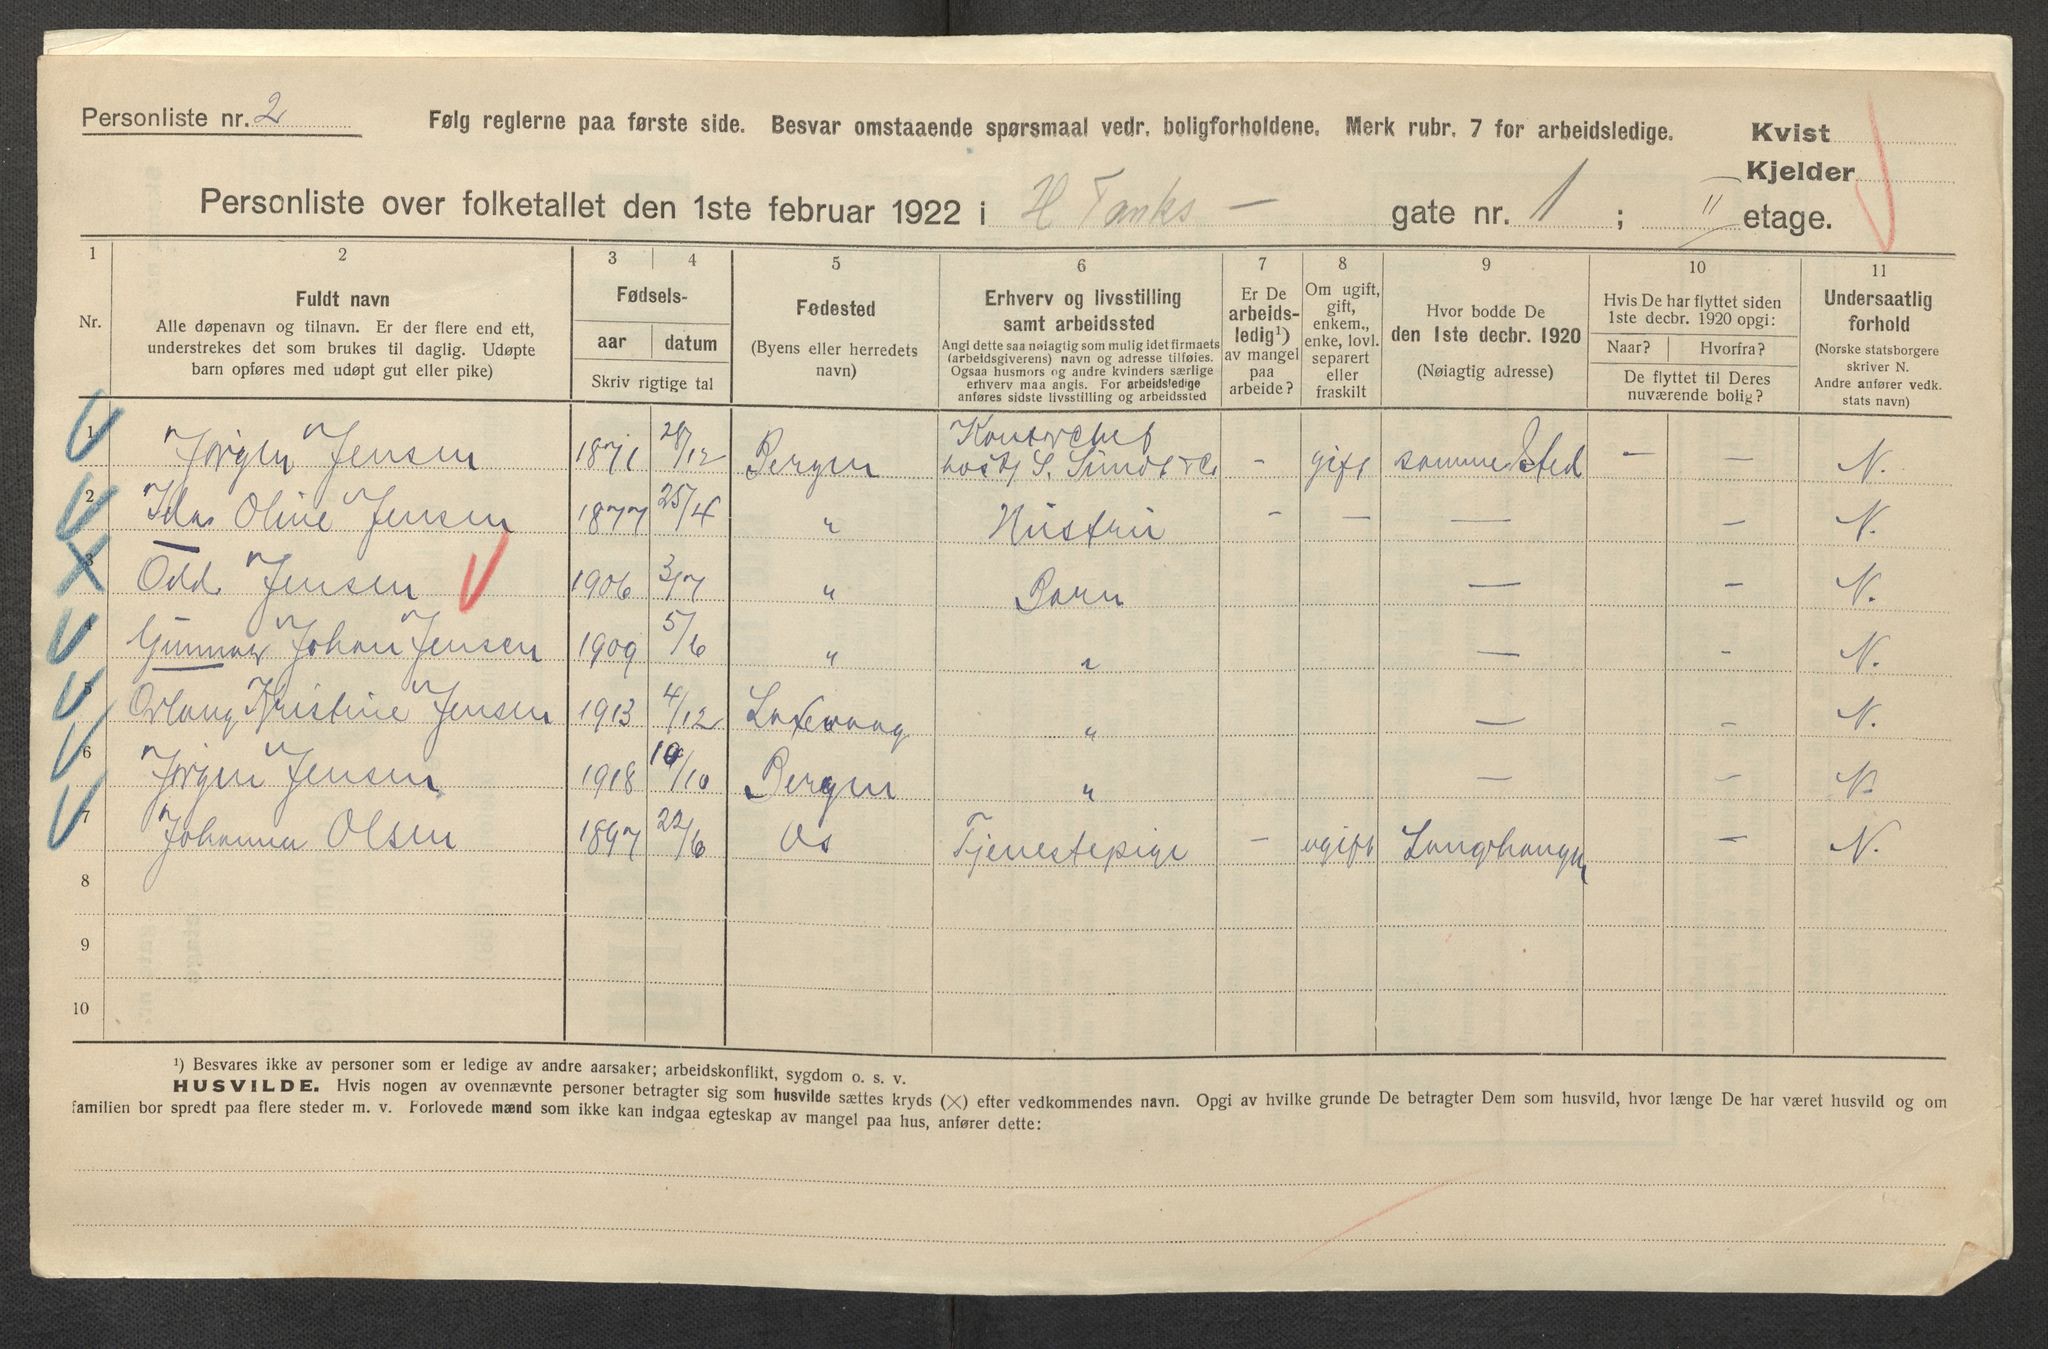 Personliste nr. 2
Følg reglerne paa første side. Besvar omstaaende spørsmaal vedr. boligforholdene. Merk rubr. 7 for arbeidsledige.
Kvist
Kjelder
Personliste over folketallet den 1ste februar 1922 i H Tanks - gate nr. 1 ; II etage.
1 2 3 4 5 6 7 8 9 10 11
Nr.
Fuldt navn
Alle døpenavn og tilnavn. Er der flere end ett,
understrekes det som brukes til daglig. Udøpte
barn opføres med udøpt gut eller pike)
Fødsels-
aar datum
Skriv rigtige tal
Fødested
(Byens eller herredets
navn)
Erhverv og livsstilling
samt arbeidssted
Angi dette saa nøiagtig som mulig idet firmaets
(arbeidsgiverens) navn og adresse tilføies.
Ogsaa husmors og andre kvinders særlige
erhverv maa angis. For arbeidsledige
anføres sidste livsstilling og arbeidssted
Er De
arbeids-
ledig¹)
av mangel
paa
arbeide?
Om ugift,
gift,
enkem.,
enke, lovl.
separert
eller
fraskilt
Hvor bodde De
den 1ste decbr. 1920
(Nøiagtig adresse)
Hvis De har flyttet siden
1ste decbr. 1920 opgi:
Naar? Hvorfra?
De flyttet til Deres
nuværende bolig?
Undersaatlig
forhold
(Norske statsborgere
skriver N.
Andre anfører vedk.
stats navn)
1 Jørgen Jensen 1871 28/12 Bergen Kontorchef - gift samme Sted - - N.
2 Ida Oline Jensen 1877 25/4 " Hustru - - - - N.
3 Odd Jensen 1906 3/7 " Barn - - N.
4 Gunnar Johan Jensen 1909 5/6 " " - - N.
5 Kristine Jensen 1913 4/12 Laxevaag " - - N.
6 Jørgen Jensen 1918 10/10 Bergen " - - N.
7 Johanna Olsen 1897 22/6 Os Tjenestepige - ugift - N.
8
9
10
¹) Besvares ikke av personer som er ledige av andre aarsaker; arbeidskonflikt, sygdom o. s. v.
HUSVILDE. Hvis nogen av ovennævnte personer betragter sig som husvilde sættes kryds (×) efter vedkommendes navn. Opgi av hvilke grunde De betragter Dem som husvild, hvor længe De har været husvild og om
familien bor spredt paa flere steder m. v. Forlovede mænd som ikke kan indgaa egteskap av mangel paa hus, anfører dette: